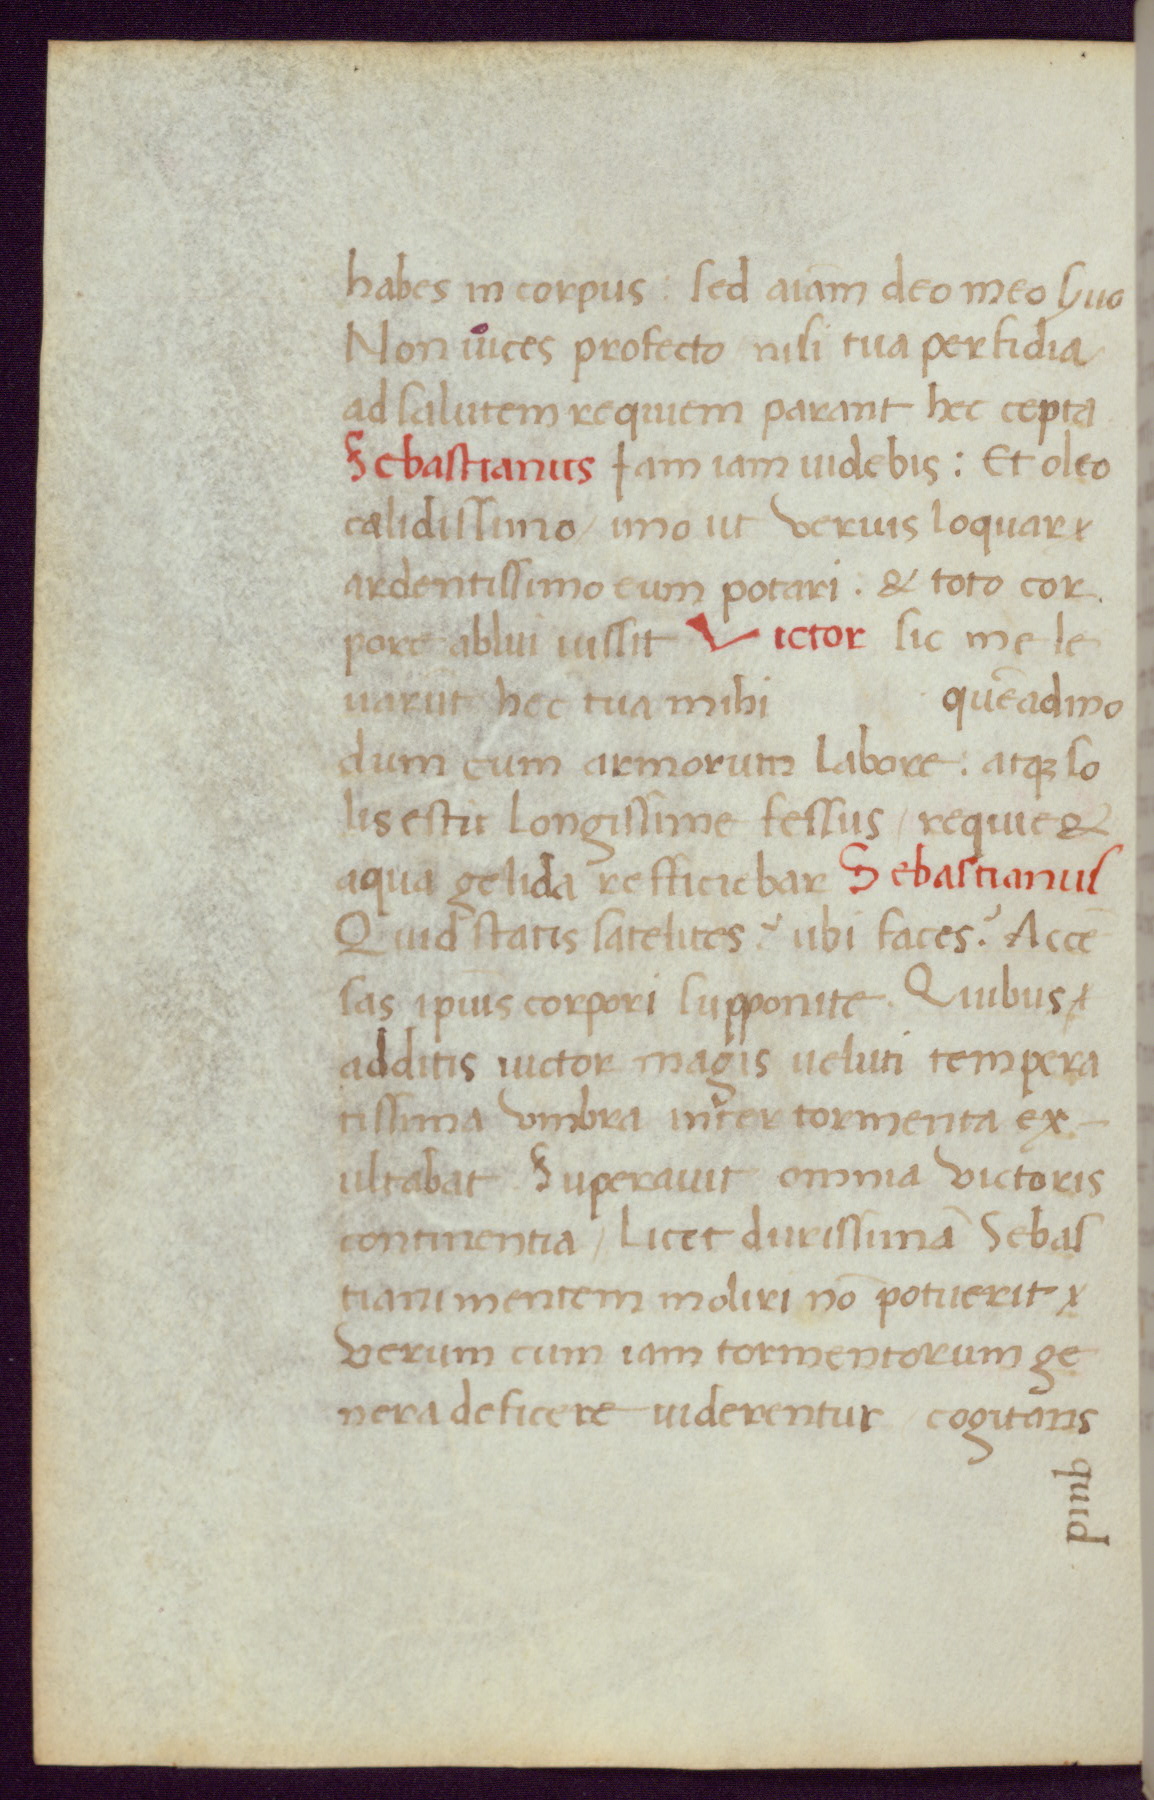 habes in corpus : sed aiam̄ deo meo Suo
Non ūices profecto nisi tua perfidia
ad salutem requiem parant hec cepta
Sebastianus Iam iam uidebis : Et oleo
calidissimo / imo ut verius loquar
ardentissimo eum potari . & toto cor
pore ablui iussit Victor sic me le
uarūt hec tua mihi quēadmo
dum cum armorum labore : atqꝫ so
lis estu longissime fessus / requie &
aqua gelida refficiebar Sebastianus
Quid statis satelites ? ubi faces ? Accē
sas ipīus corpori supponite . Quibus
additis uictor magis ueluti tempera
tissima vmbra inter tormenta ex
ultabat Superauit omnia victoris
continentia / Licet durissimā Sebas
tiani mentem moliri nō potuerit
verum cum iam tormentorum ge
nera deficere uiderentur / cogitans
quid